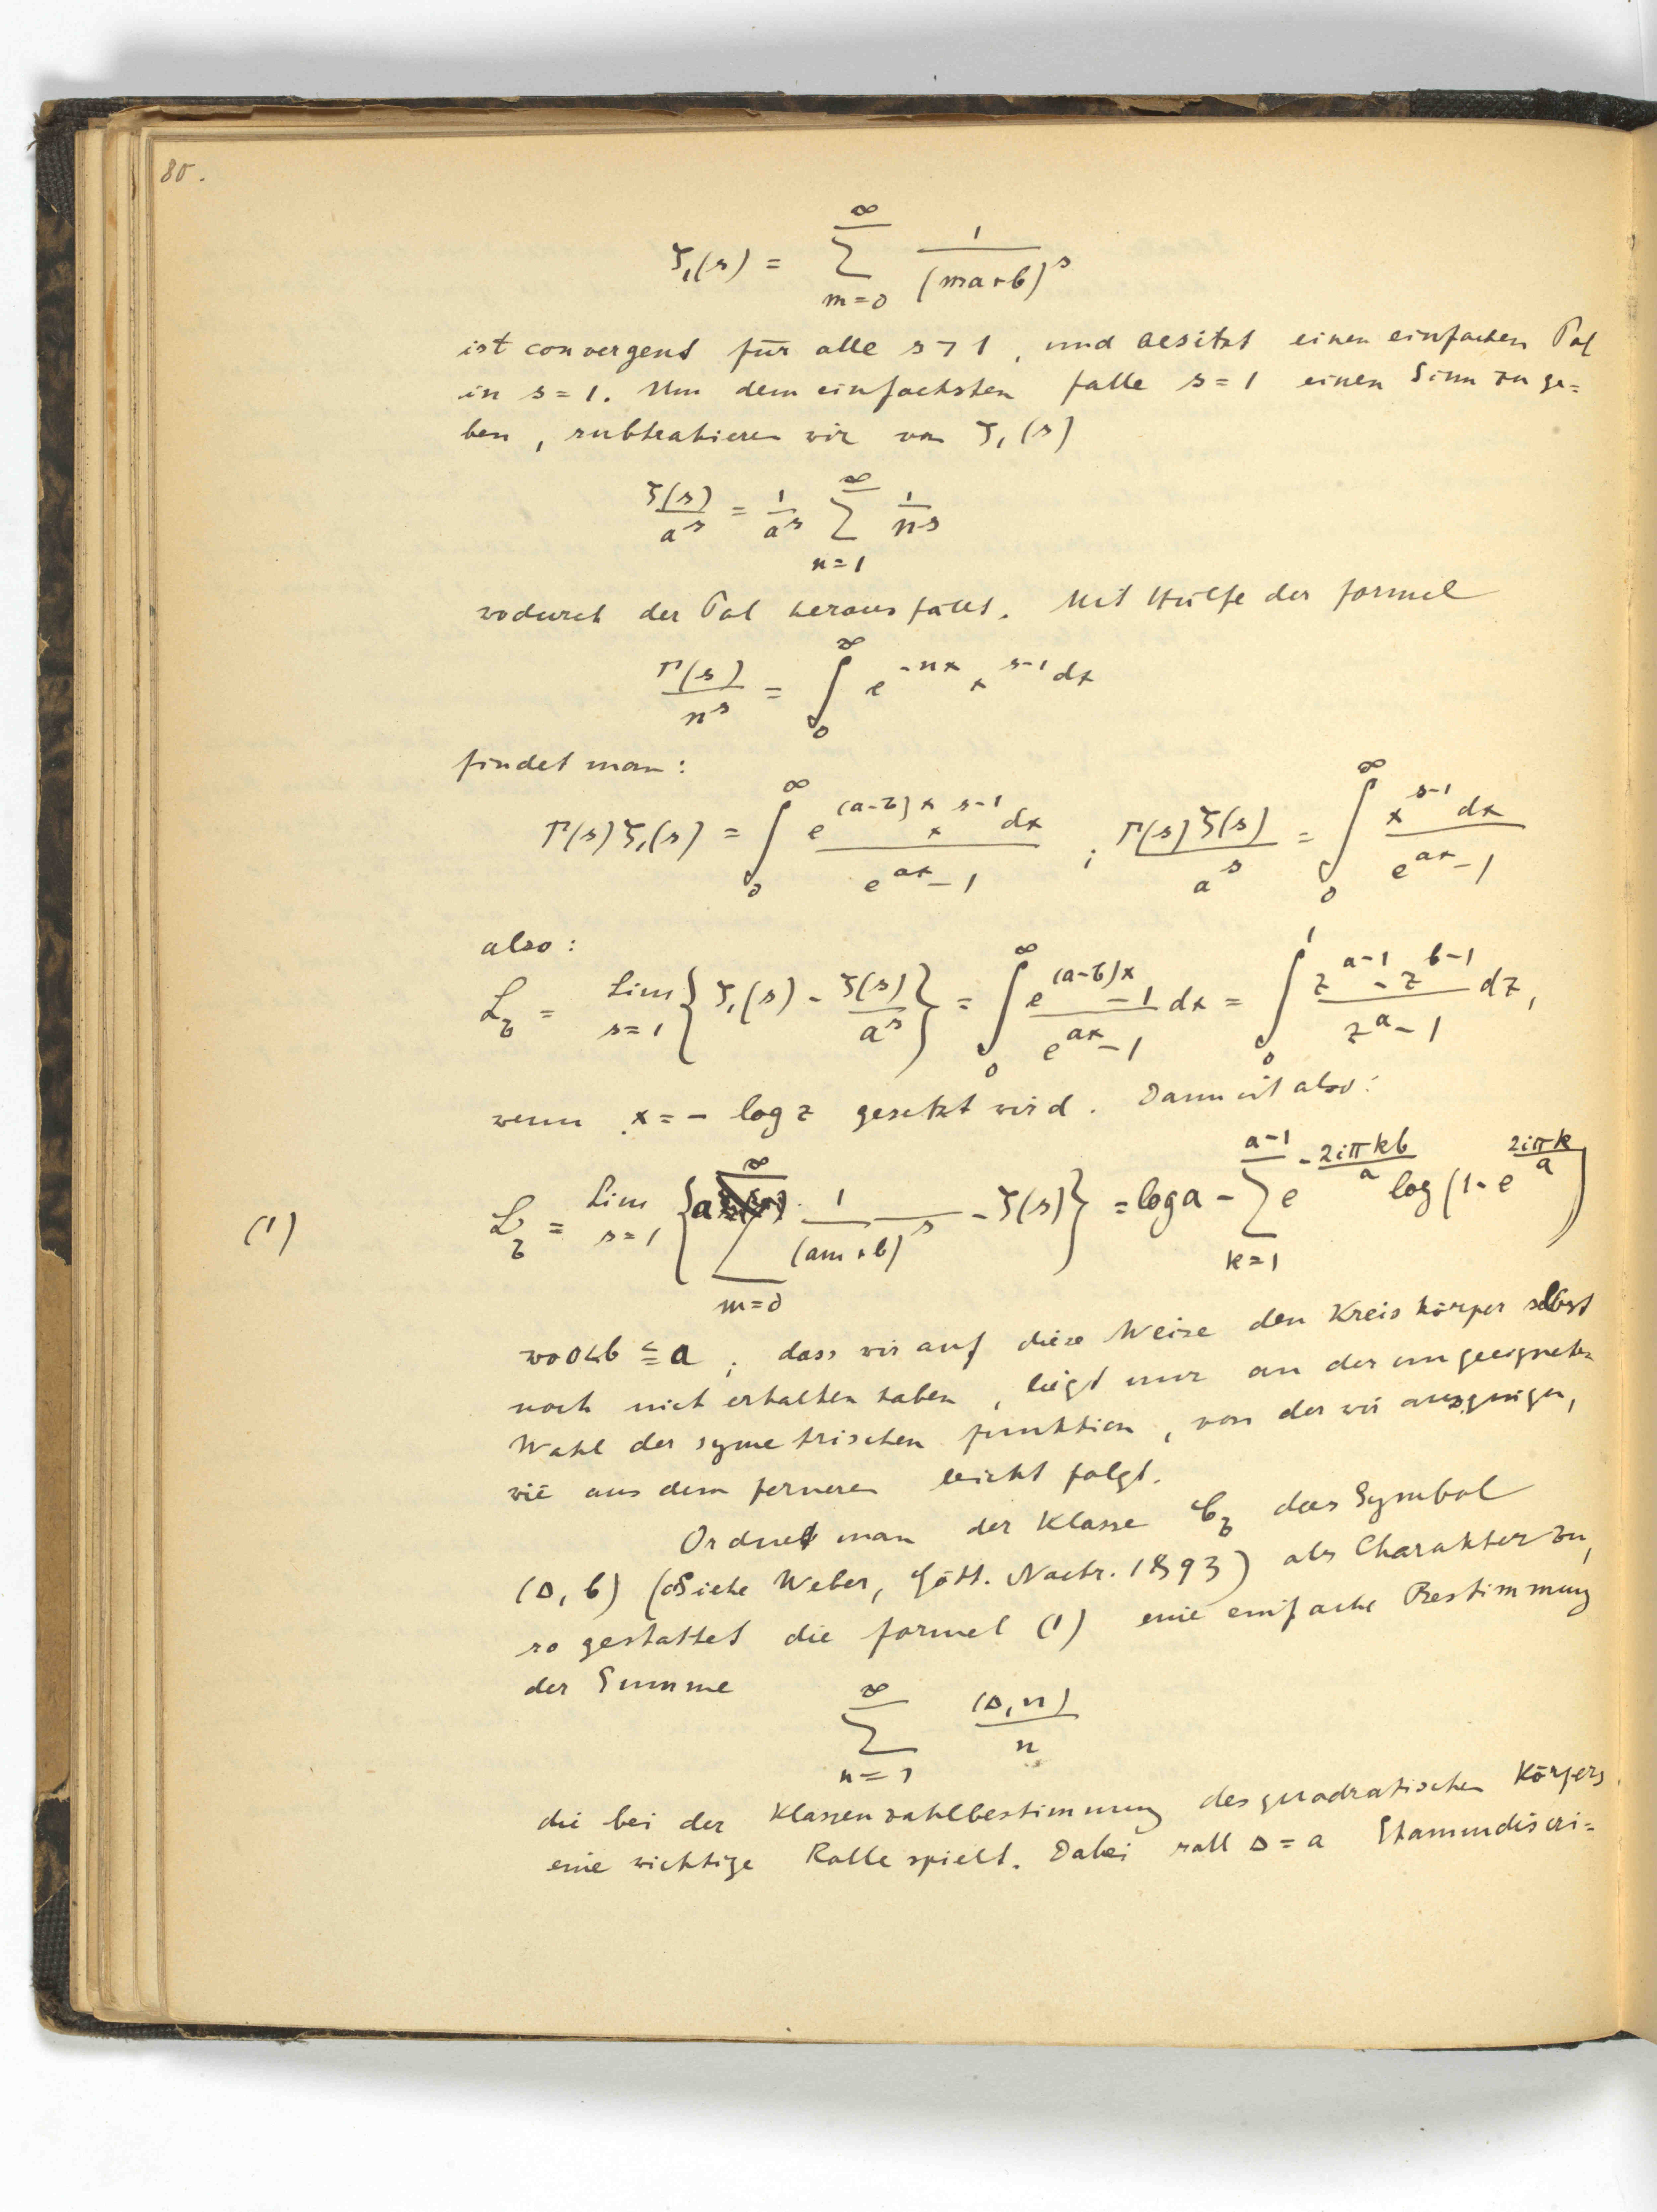 80.
ζ₁(s) = ∑_{m=0}^{∞} 1/(ma+b)^s
ist convergent für alle s > 1, und besitzt einen einfachen Pol
in s = 1. Um dem einfachsten falle s = 1 einen Sinn zu ge=
ben, subtrahieren wir von ζ₁(s)
ζ(s)/a^s = 1/a^s ∑_{n=1}^{∞} 1/n^s
wodurch der Pol herausfällt. Mit Hülfe der formel
Γ(s)/n^s = ∫_0^∞ e^{-nx} x^{s-1} dx
findet man:
Γ(s)ζ₁(s) = ∫_0^∞ e^{(a-b)x} x^{s-1} dx/(e^{ax}-1) ; Γ(s)ζ(s)/a^s = ∫_0^∞ x^{s-1} dx/(e^{ax}-1)
also:
L_b = Lim_{s=1} {ζ₁(s) - ζ(s)/a^s} = ∫_0^∞ (e^{(a-b)x} - 1)/(e^{ax}-1) dx = ∫_0^1 (z^{a-1} - z^{b-1})/(z^a - 1) dz,
wenn x = - log z gesetzt wird. Dann ist also:
(1) L_b = Lim_{s=1} {a ∑_{m=0}^{∞} 1/(am+b)^s - ζ(s)} = log a - ∑_{k=1}^{a-1} e^{-2iπkb/a} log(1-e^{2iπk/a})
wo 0<b ≦ a ; dass wir auf diese Weise den Kreiskörper selbst
noch nicht erhalten haben, liegt nur an der ungeeigneten
Wahl der symetrischen funktion, von der wir ausgingen,
wie aus dem ferneren leicht folgt.
Ordnet man der Klasse C_b das Symbol
(Δ, b) (Siehe Weber, Gött. Nachr. 1893) als Charakter zu,
so gestattet die formel (1) eine einfache Bestimmung
der Summe
∑_{n=1}^{∞} (Δ, n)/n
die bei der Klassenzahlbestimmung des quadratischen Körpers
eine wichtige Rolle spielt. Dabei soll Δ = a Stammdiscri=